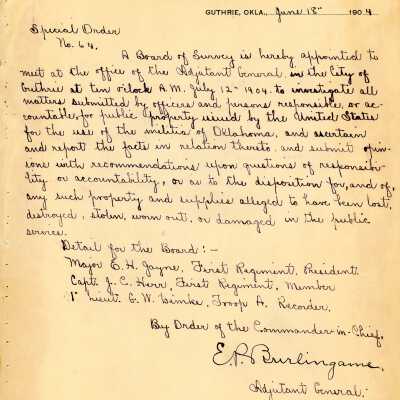 GUTHRIE, OKLA., June 18th 1904
Special Order
No. 64.
A Board of Survey is hereby appointed to
meet at the office of the Adjutant General in the City of
Guthrie at ten o'clock A.M. July 12th 1904. to investigate all
matters submitted by officers and persons responsible, or ac-
countable, for public property issued by the United States
for the use of the militia of Oklahoma, and ascertain
and report the facts in relation thereto. and submit opin-
ions with recommendations upon questions of responsibi-
lity or accountability, or as to the disposition for, and of,
any such property and supplies alleged to have been lost,
destroyed, stolen, worn out, or damaged in the public
service.
Detail for the Board:-
Major E. H. Jayne, First Regiment, President
Capt. J. C. Herr, First Regiment, Member
1st Lieut. G. W. Timke, Troop A. Recorder.
By Order of the Commander-in-Chief.
E. P. Burlingame.
Adjutant General.-